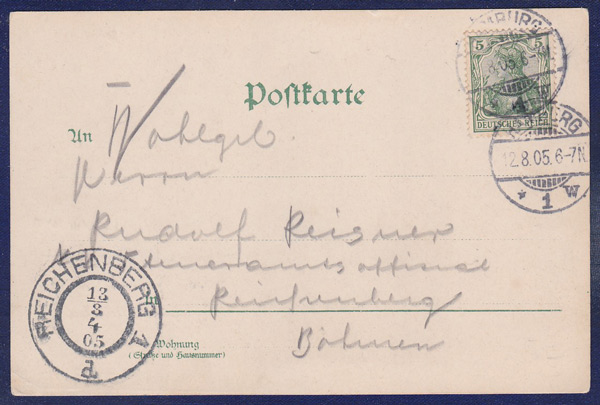 Postkarte
5 5
DEUTSCHES REICH
BURG
05.6-
BERG
12.8.05.6-7N.
* 1 W.
An Wohlgeb.
Herrn
Rudolf Reisner
k. Steueramtsofficial
in Reichenberg
Böhmen
Wohnung
(Straße und Hausnummer)
REICHENBERG
13
8
4
05